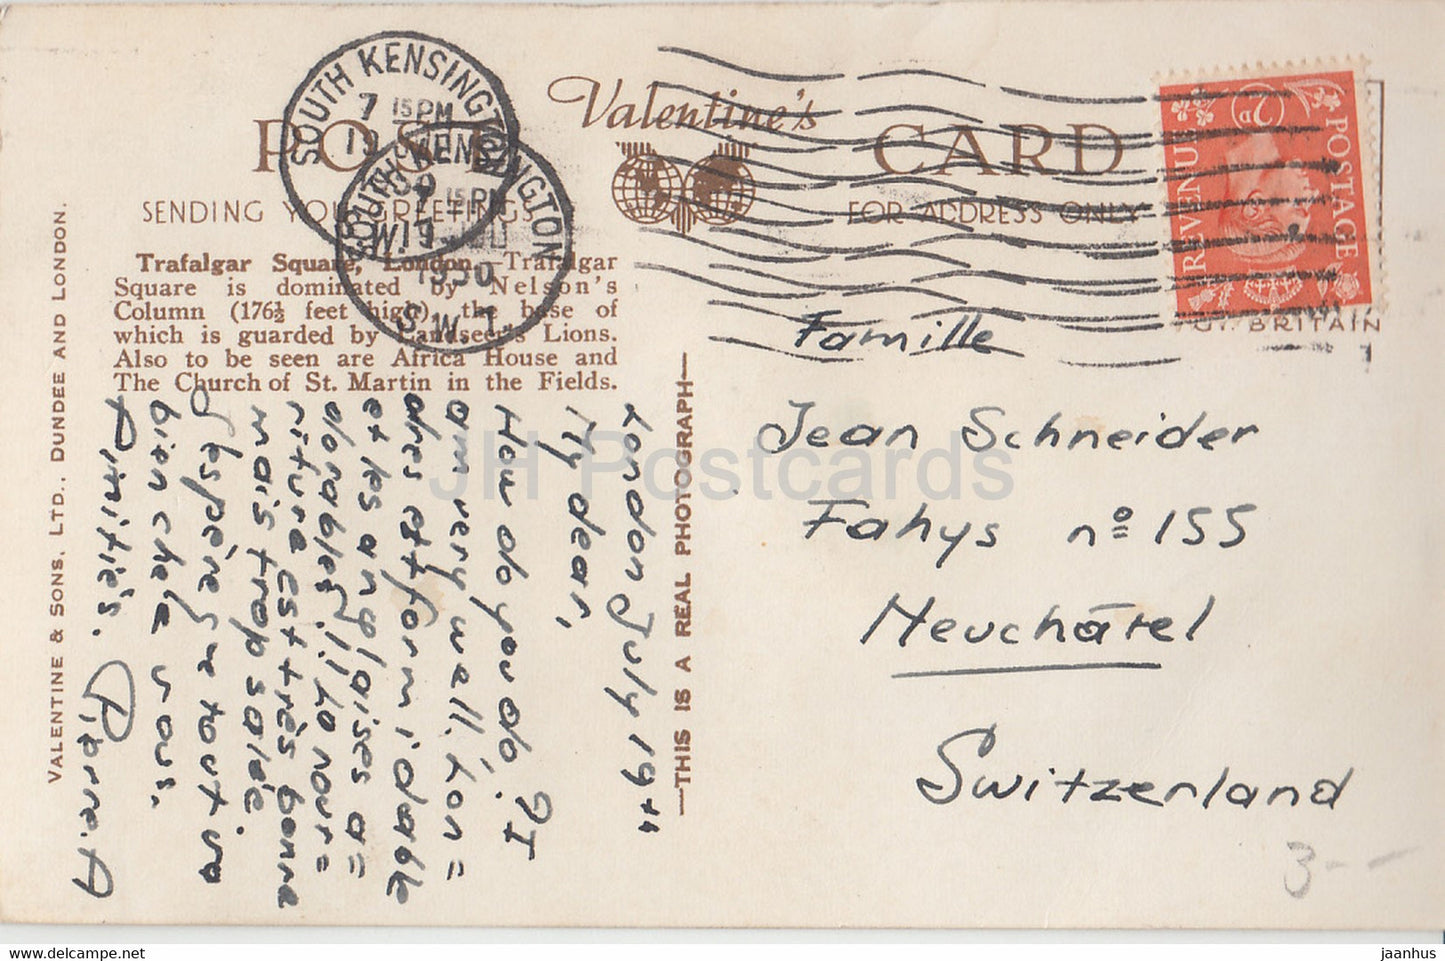 SOUTH KENSINGTON
7 15 PM
19
S.W.
SOUTH KENSINGTON
7 15 PM
19
1950
S.W.
POST
Valentine's
CARD
SENDING YOU GREETINGS
FOR ADDRESS ONLY
POSTAGE
2D
REVENUE
GT. BRITAIN
Trafalgar Square, London. Trafalgar
Square is dominated by Nelson's
Column (176½ feet high), the base of
which is guarded by Landseer's Lions.
Also to be seen are Africa House and
The Church of St. Martin in the Fields.
VALENTINE & SONS. LTD., DUNDEE AND LONDON.
—THIS IS A REAL PHOTOGRAPH—
London July 19th
My dear,
How do you do? I
am very well. Lon=
dres est formidable
et les anglaises a=
dorables!! La nour=
riture est très bonne
mais trop salée.
J'espère que tout va
bien chez vous.
Amitiés. Pierre. A
Famille
Jean Schneider
Fahys nº 155
Neuchâtel
Switzerland
3--
JH Postcards
jaanhus